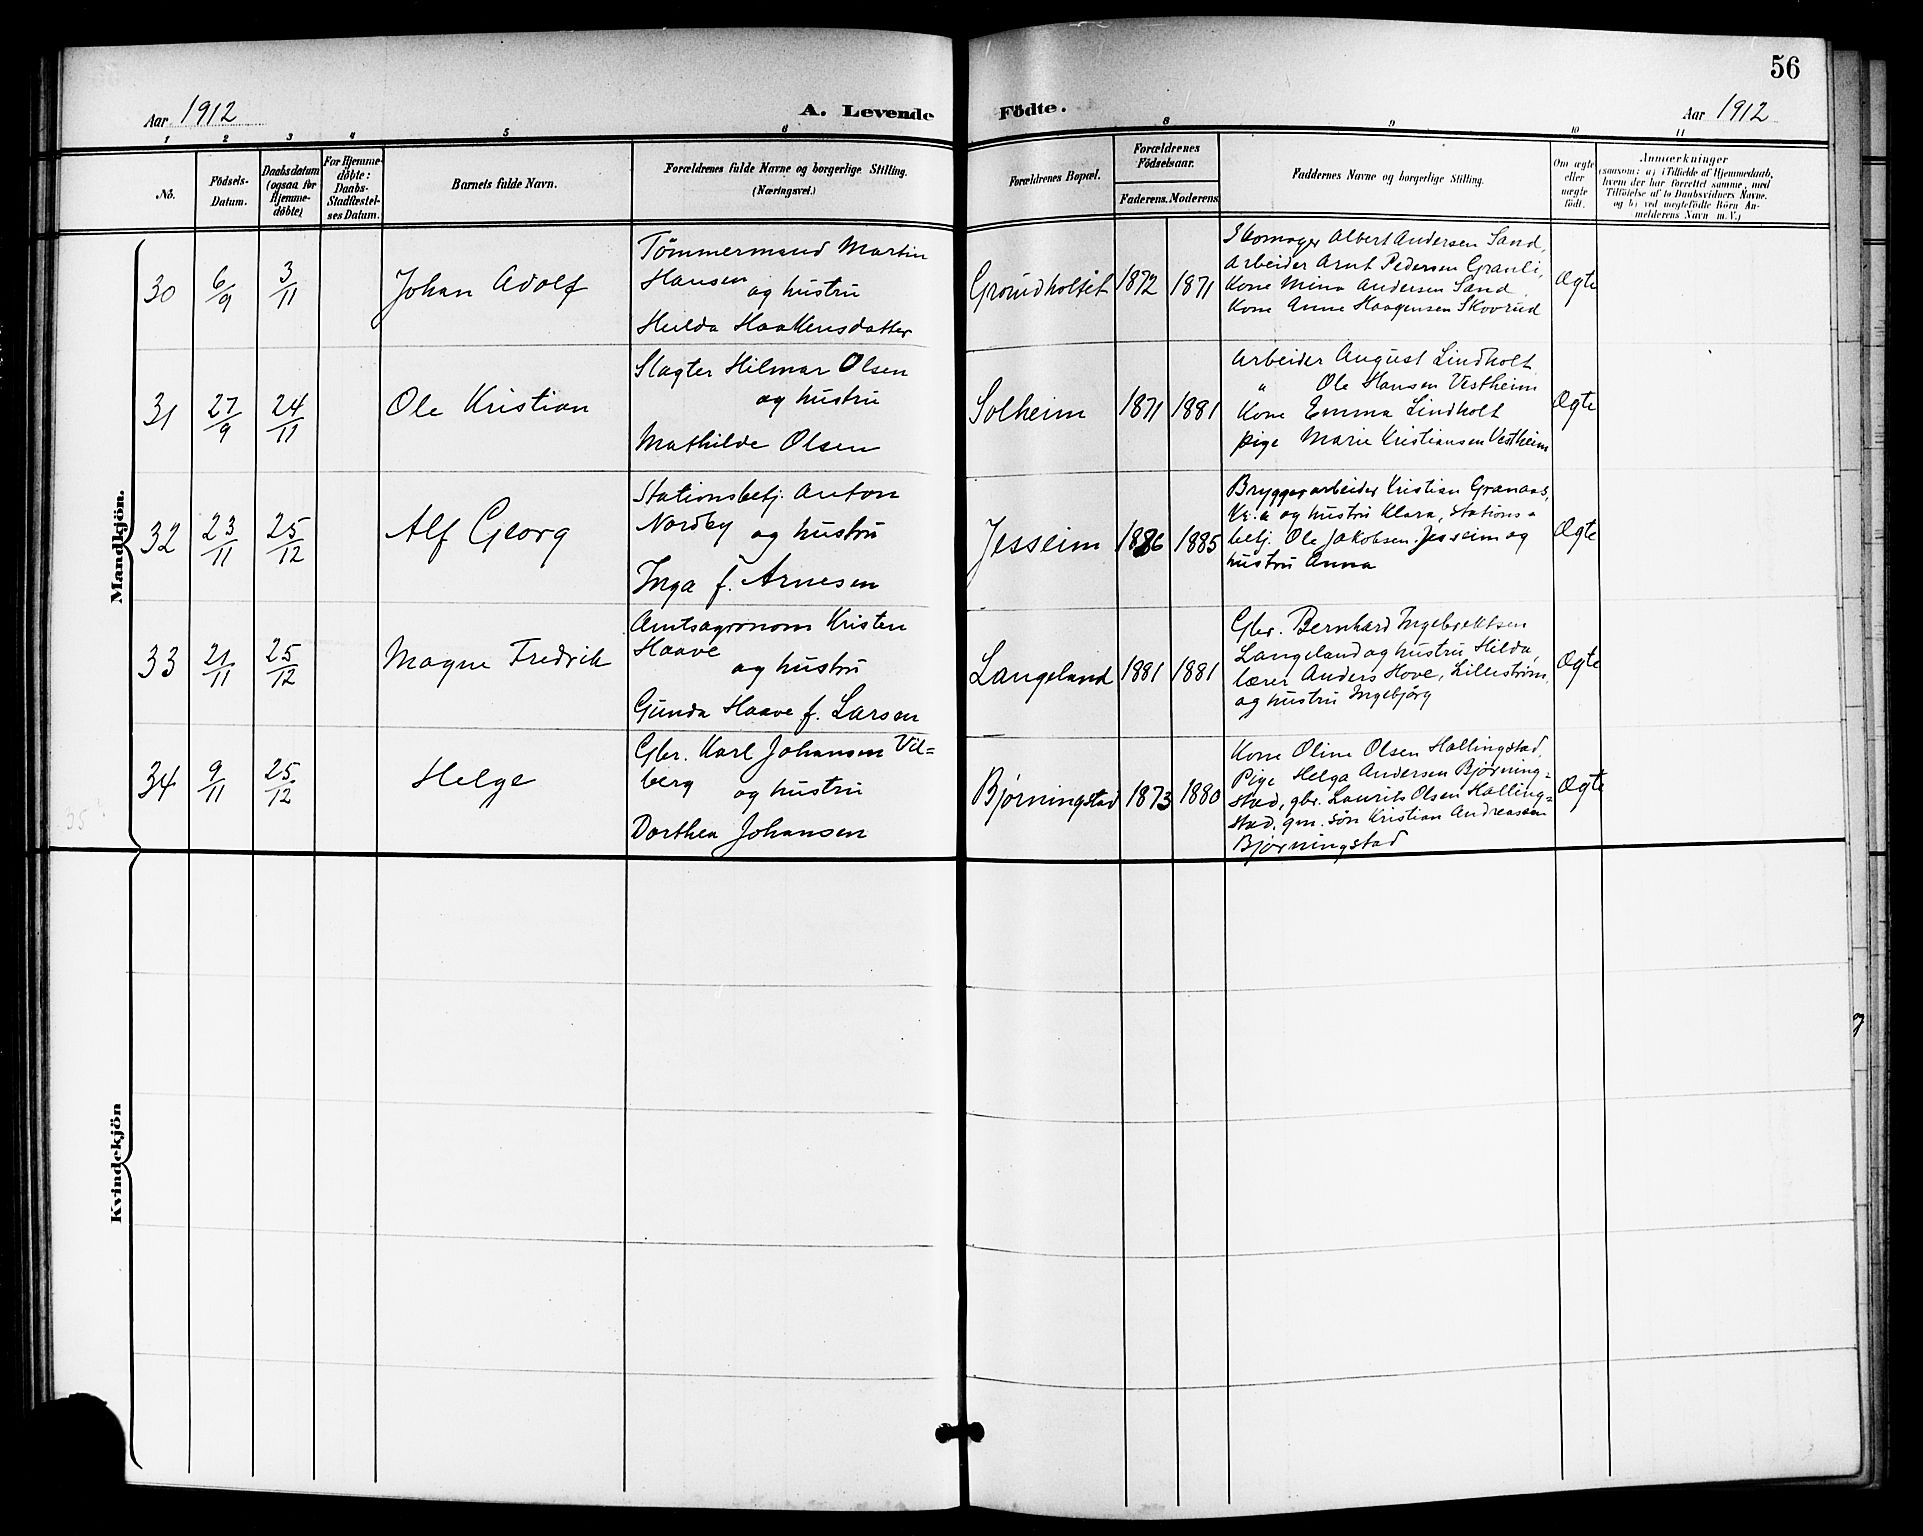 56
Aar 1912
A. Levende
Födte.
Aar 1912
1 2 3 4 5 6 8 9 10 11
No.
Födsels-
Datum.
Daabsdatum
(ogsaa for
Hjemme-
døbte)
For Hjemme-
døbte:
Daabs-
Stadfæstel-
ses Datum.
Barnets fulde Navn.
Forældrenes fulde Navne og borgerlige Stilling.
(Næringsvei.)
Forældrenes Bopæl.
Forældrenes
Födselsaar.
Faderens. Moderens.
Faddernes Navne og borgerlige Stilling.
Om ægte
eller
uægte
født.
Anmærkninger
(saasom: a) i Tilfælde af Hjemmedaab,
hvem der har forrettet samme, med
Tilföielse af to Daabsvidners Navne.
og b) ved uegtefödte Börn An-
melderens Navn m. V.)
Mandkjön.
30
6/9
3/11
Johan Adolf
Tømmermand Martin
Hansen og hustru
Hulda Haakensdatter
Grøndholtet
1872 1871
Skomager Albert Andersen Sand,
Arbeider Arnt Pedersen Granli,
Kone Mina Andersen Sand
Kone Anne Haagensen Skovrud
Ægte
31
27/9
24/11
Ole Kristian
Slagter Hilmar Olsen
og hustru
Mathilde Olsen
Solheim
1871 1881
Arbeider August Lindholt
" Ole Hansen Vestheim
Kone Emma Lindholt
pige Marie Kristiansen Vestheim
Ægte
32
23/11
25/12
Alf Georg
Stationsbetj. Anton
Nordby og hustru
Inga f. Arnesen
Jesseim
1886 1885
Bryggeriarbeider Kristian Granaas,
Kr.a og hustru Klara, stations-
betj. Ole Jakobsen Jesseim og
hustru Anna
Ægte
33
21/11
25/12
Magne Fredrik
Amtsagronom Kristen
Haave
og hustru
Gunda Haave f. Larsen
Langeland
1881 1881
Gbr. Bernhard Ingebrektsen
Langeland og hustru Hilda,
lærer Anders Hove, Lillestrøm,
og hustru Ingebjørg
Ægte
34
9/11
25/12
Helge
Gbr. Karl Johansen Vil=
berg og hustru
Dorthea Johansen
Bjørningstad
1873 1880
Kone Oline Olsen Hallingstad,
Pige Helga Andersen Bjørning=
stad, gbr. Laurits Olsen Halling=
stad, gm. søn Kristian Andreassen
Bjørningstad
Ægte
35?
Kvindekjön
og